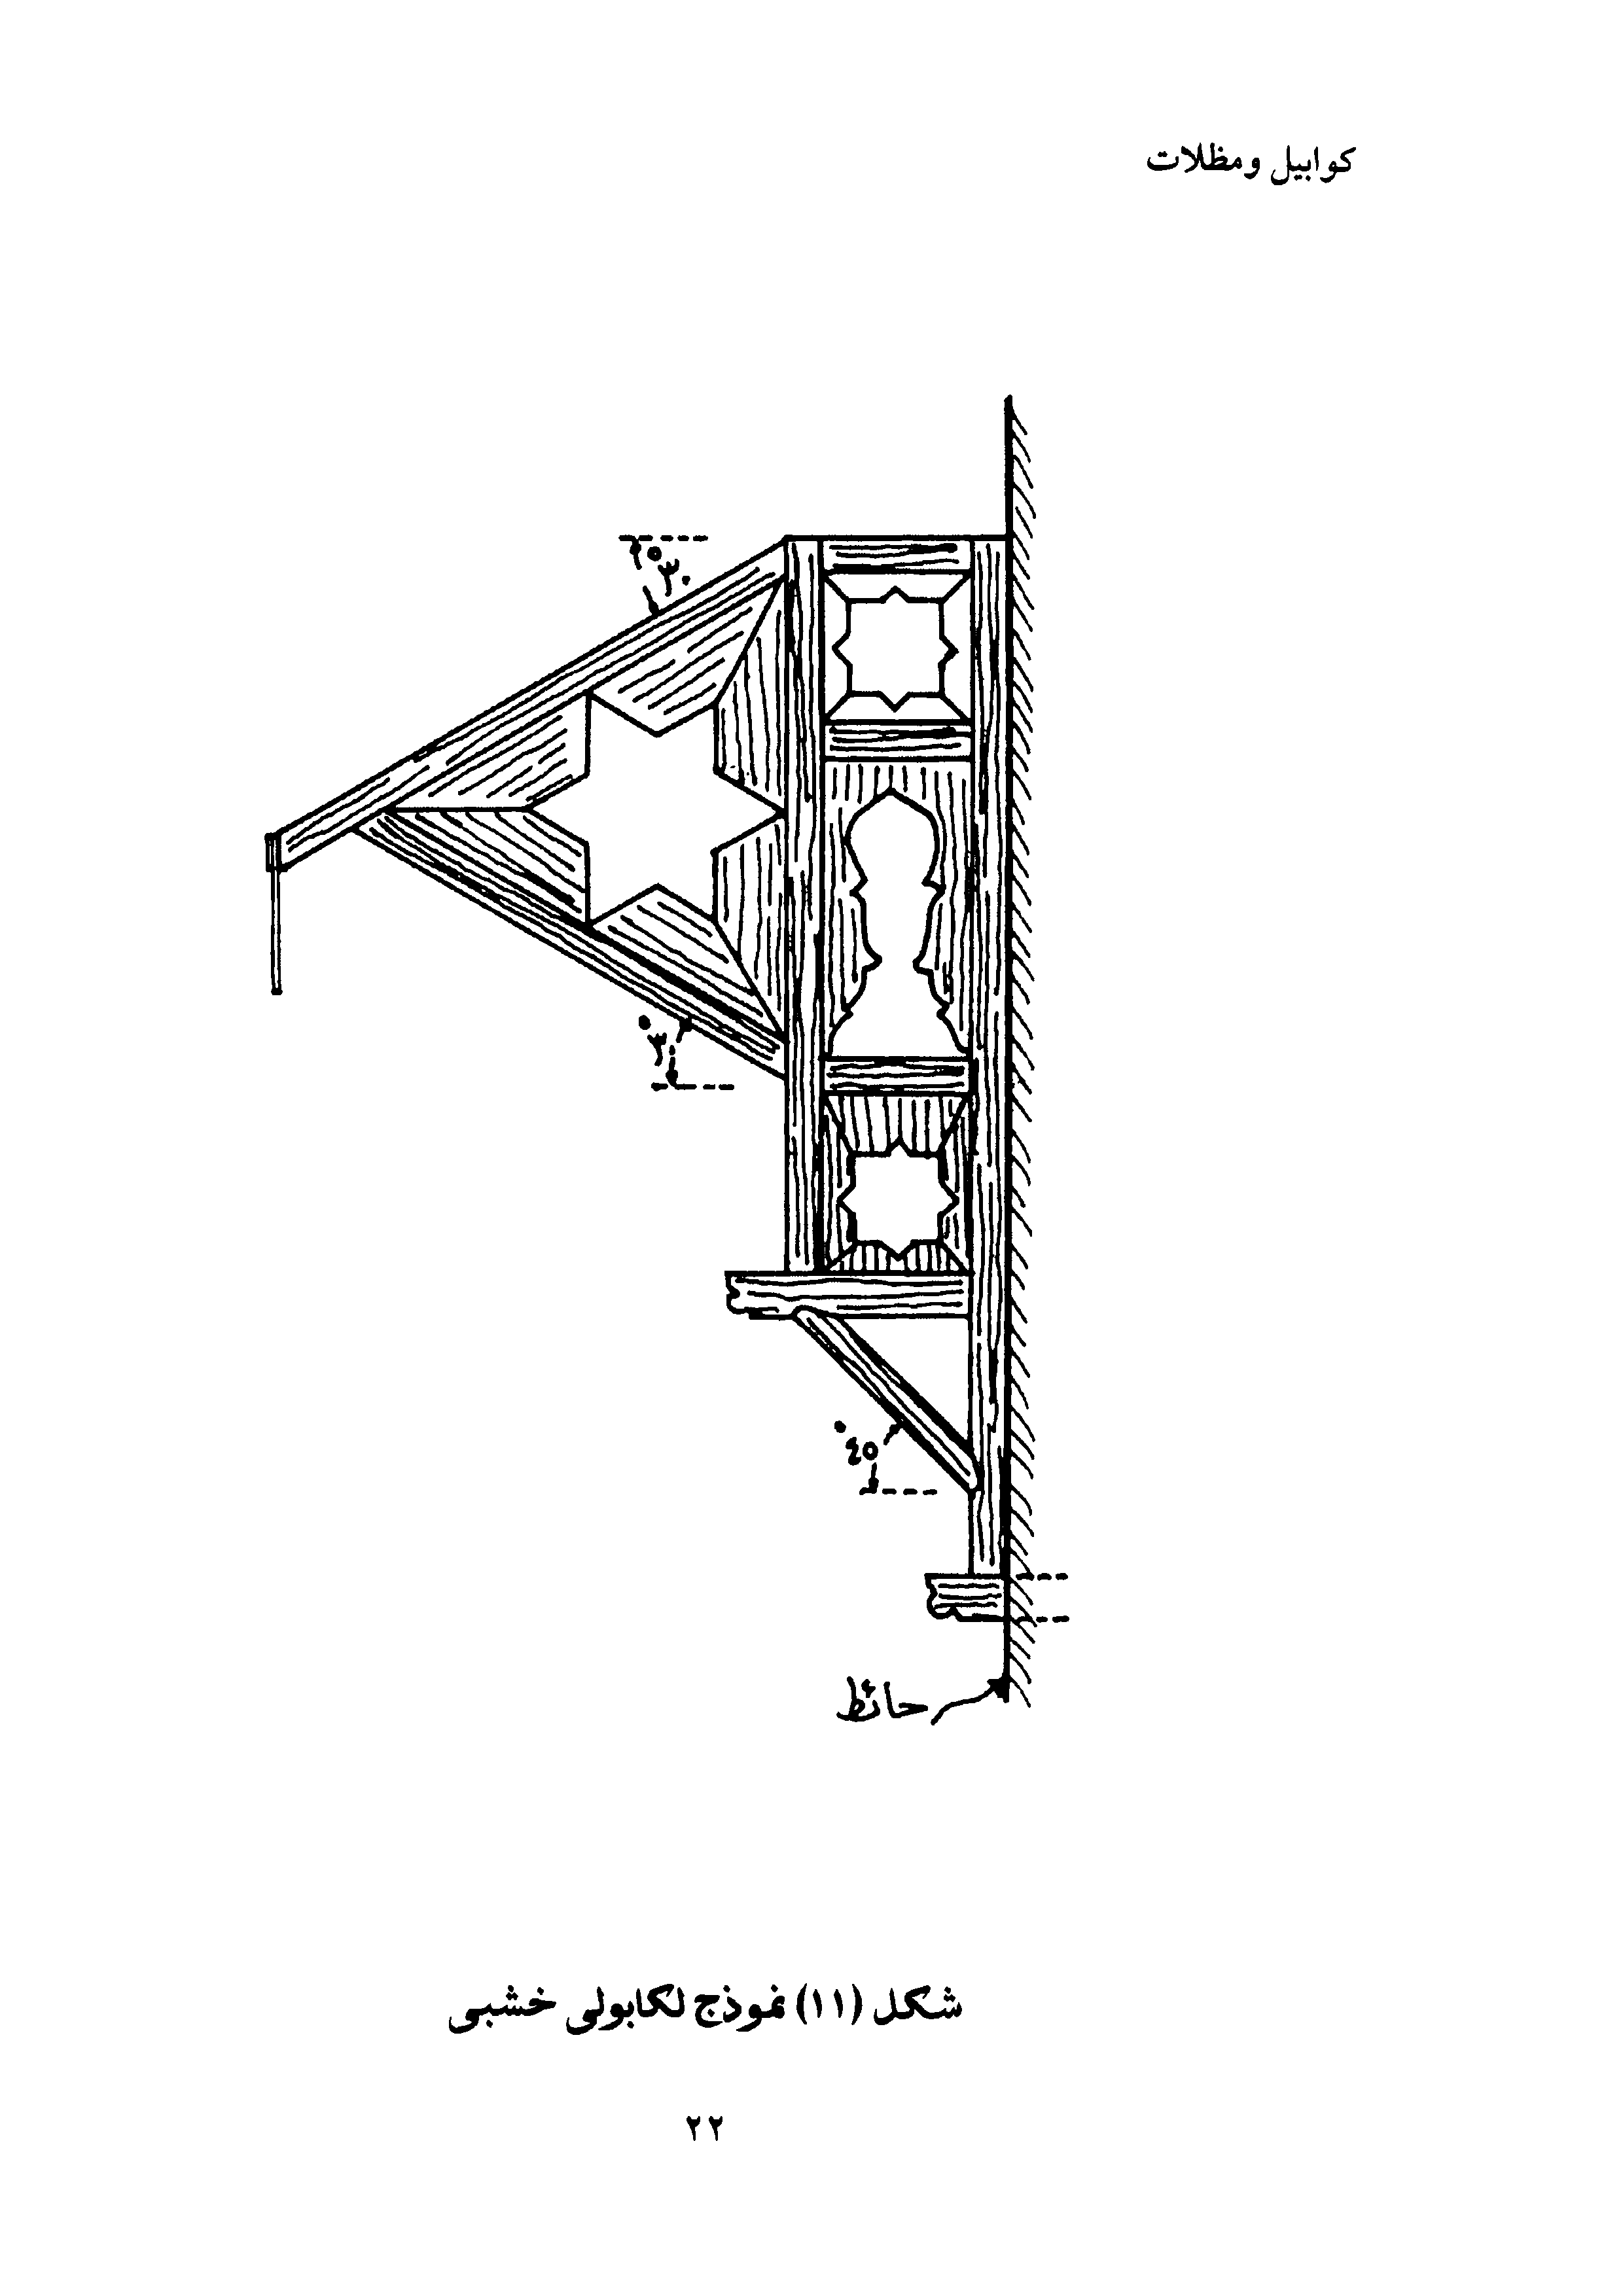 كوابيل ومظلات
٣٠°
٣٠°
٤٥°
حائط
شكل (١١) نموذج لكابولي خشبي
٢٢